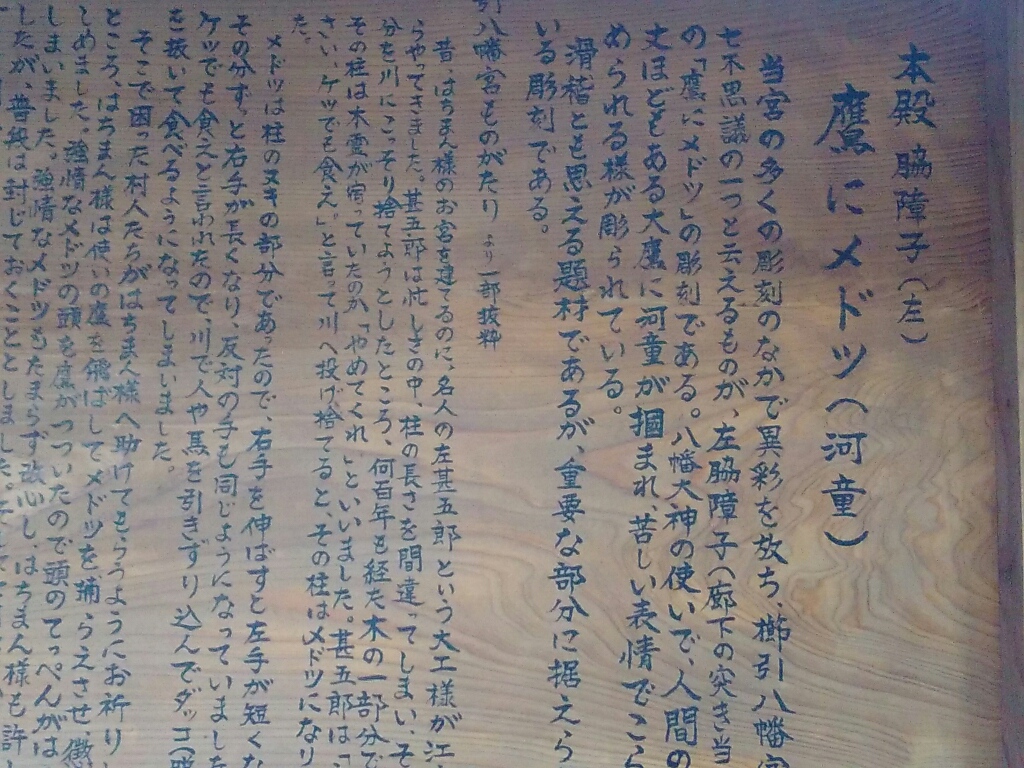 本殿 脇障子（左）
鷹にメドツ（河童）
当宮の多くの彫刻のなかで異彩を放ち、櫛引八幡宮
七不思議の一つと云えるものが、左脇障子（廊下の突き当
の「鷹にメドツ」の彫刻である。八幡大神の使いで、人間の
丈ほどもある大鷹に河童が掴まれ、苦しい表情でこら
められる様が彫られている。
滑稽とも思える題材であるが、重要な部分に据えら
いる彫刻である。
引八幡宮ものがたり より一部抜粋
昔、はちまん様のお宮を建てるのに、名人の左甚五郎という大工様が江
らやってきました。甚五郎は忙しさの中、柱の長さを間違ってしまい、そ
分を川にこっそり捨てようとしたところ、何百年も経た木の一部分で
その柱は木霊が宿っていたのか「やめてくれ」といいました。甚五郎は「
さい、ケツでも食え」と言って川へ投げ捨てると、その柱はメドツになり
た。
メドツは柱のヌキの部分であったので、右手を伸ばすと左手が短くな
その分ずっと右手が長くなり、反対の手も同じようになっていました
ケツでも食えと言われたので、川で人や馬を引きずり込んでダッコ（
を抜いて食べるようになってしまいました。
そこで困った村人たちがはちまん様へ助けてもらうようにお祈り
ところ、はちまん様は使いの鷹を飛ばしてメドツを捕らえさせ、懲
しめました。強情なメドツの頭を鷹がつついたので頭のてっぺんがは
しまいました。強情なメドツもたまらず改心し、はちまん様も許し
したが、普段は封じておくこととしました。